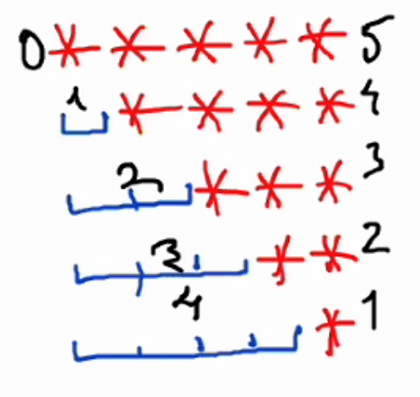 0 * * * * * 5
1 * * * * 4
2 * * * 3
3 * * 2
4 * 1